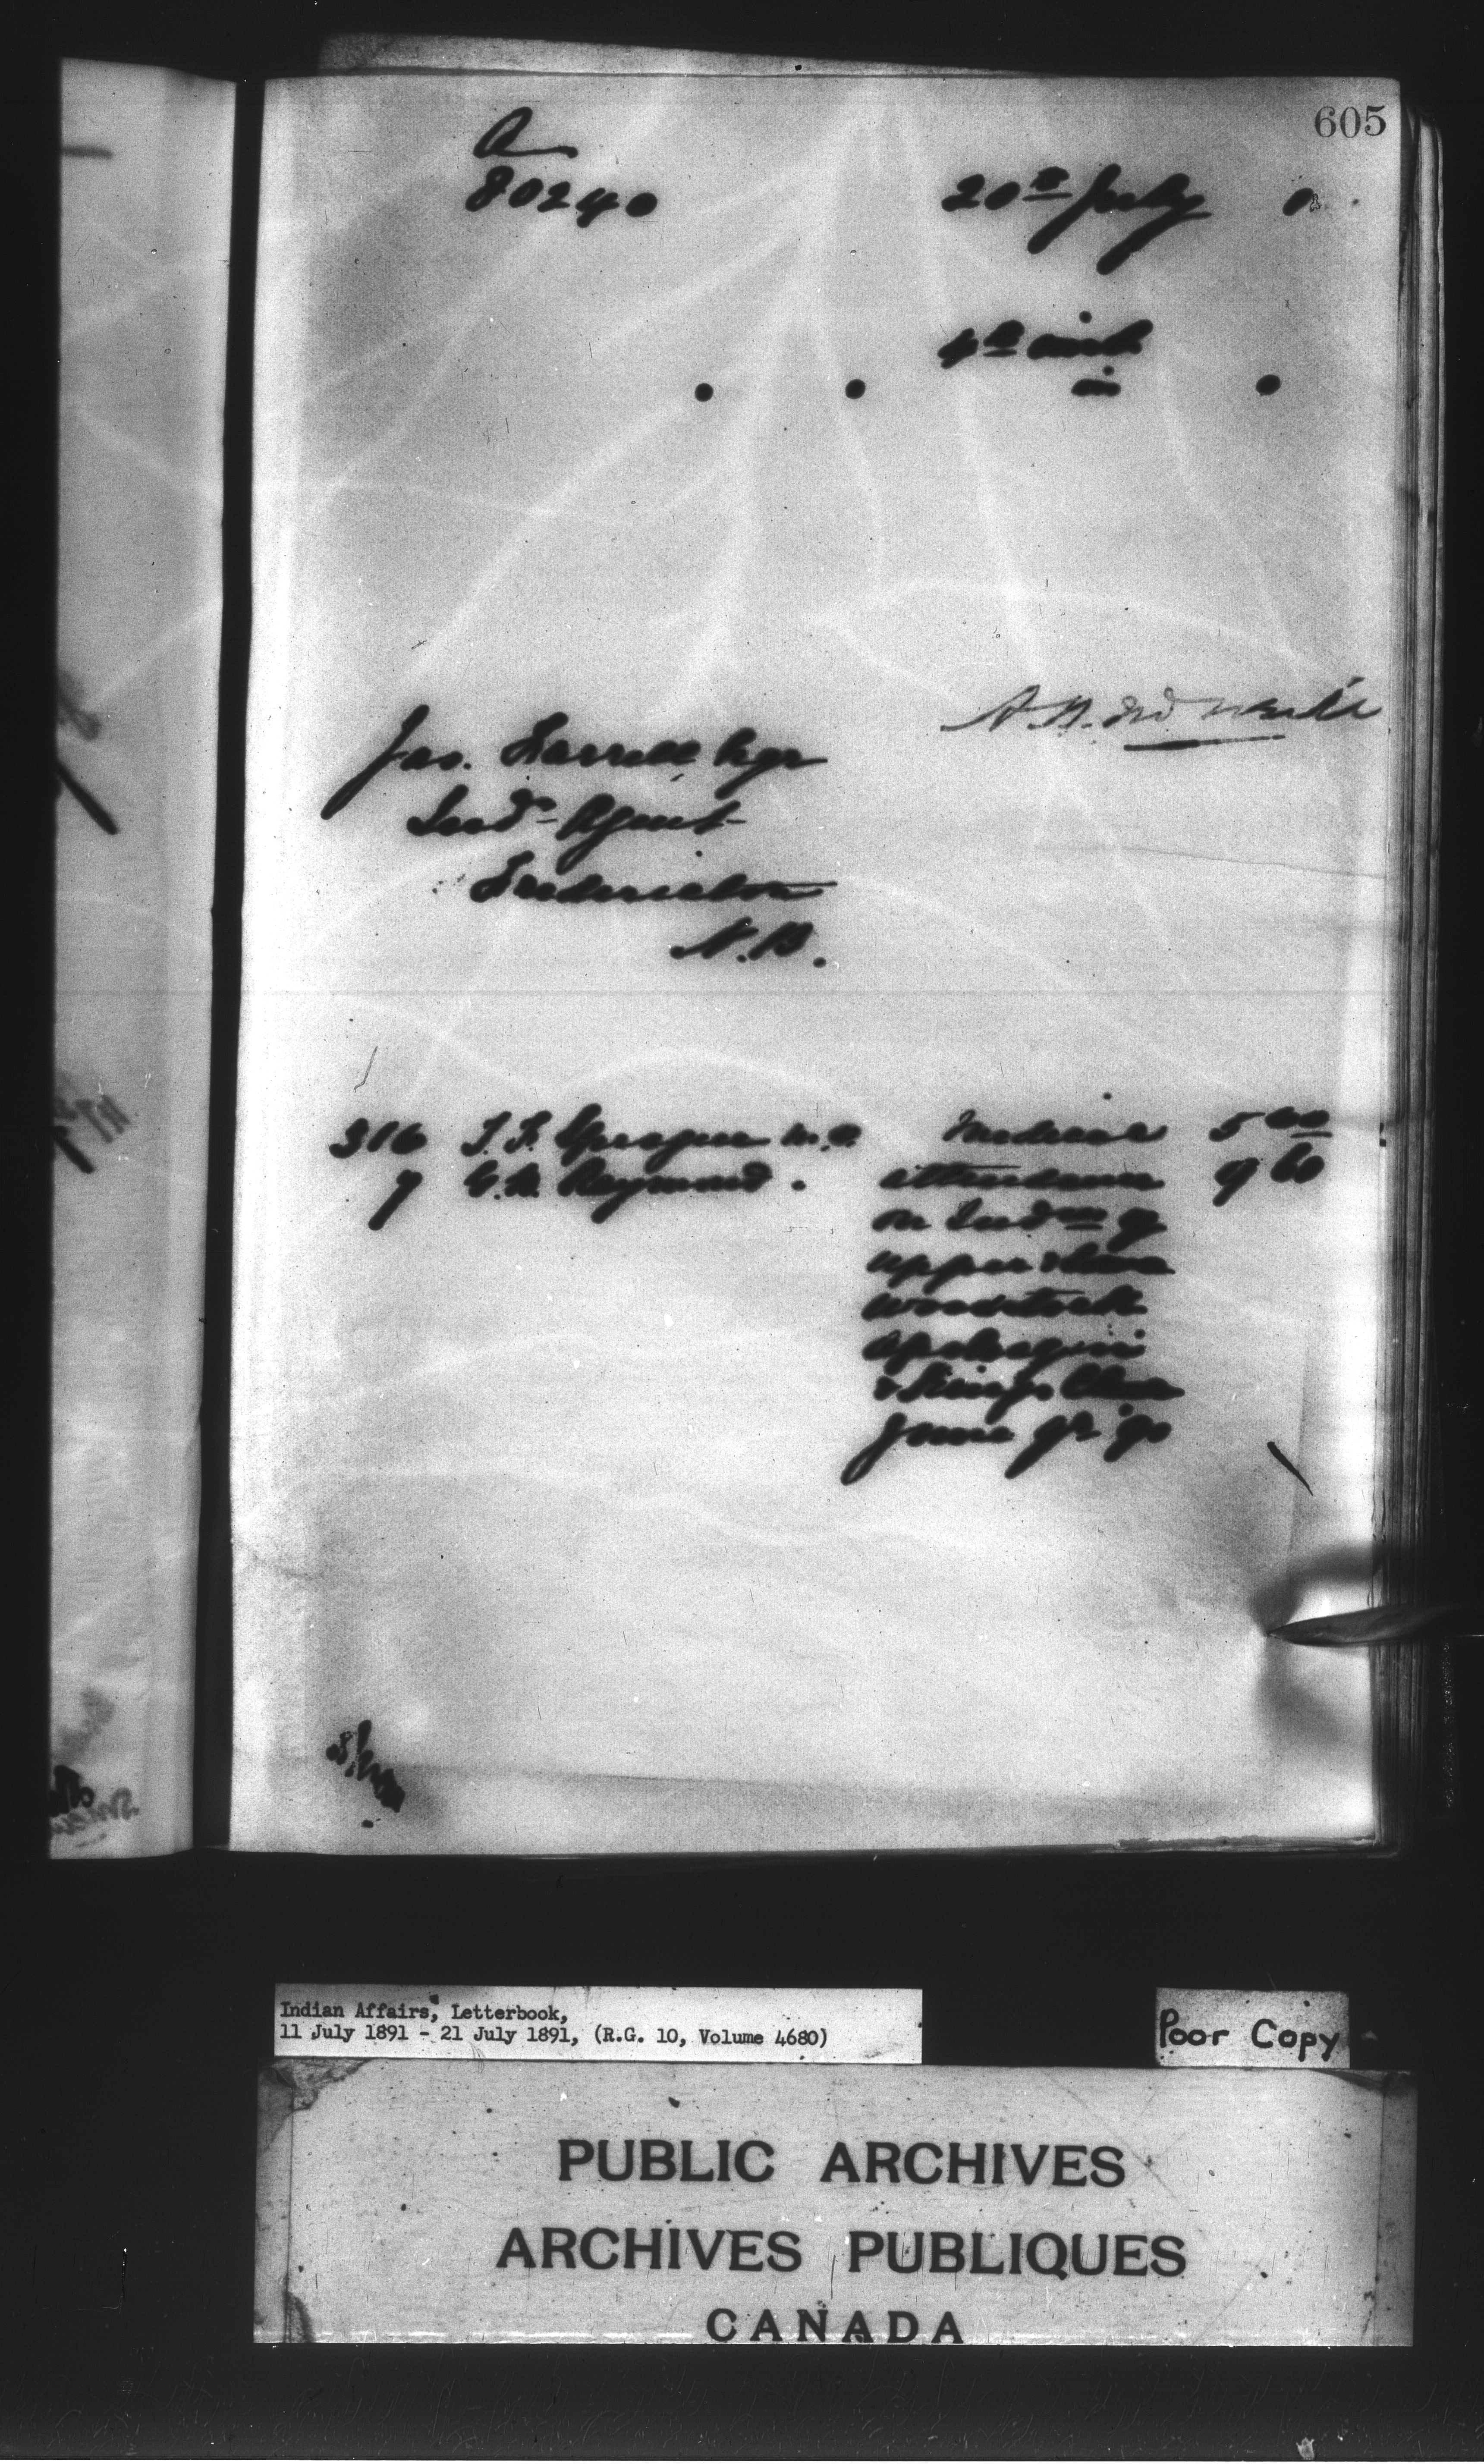 605
A
80240
20th July 1
4th inst
in
Jas. Farrell Esqr
Indn Agent
Fredericton
N.B.
316 T.F. Sprague M.D. Medical 5 00
7 G.R. Raymond. attendance 9 60
on Indns of
upper &
Woodstock
Apohaqui
& Kings Clear
June qr 90
Indian Affairs, Letterbook,
11 July 1891 - 21 July 1891, (R.G. 10, Volume 4680)
Poor Copy
PUBLIC ARCHIVES
ARCHIVES PUBLIQUES
CANADA